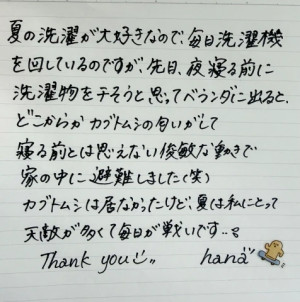 夏の洗濯が大好きなので、毎日洗濯機
を回しているのですが、先日、夜寝る前に
洗濯物を干そうと思ってベランダに出ると、
どこからかカブトムシの匂いがして
寝る前とは思えない俊敏な動きで
家の中に避難しました(笑)
カブトムシは居なかったけど、夏は私にとって
天敵が多くて毎日が戦いです..
Thank you hana